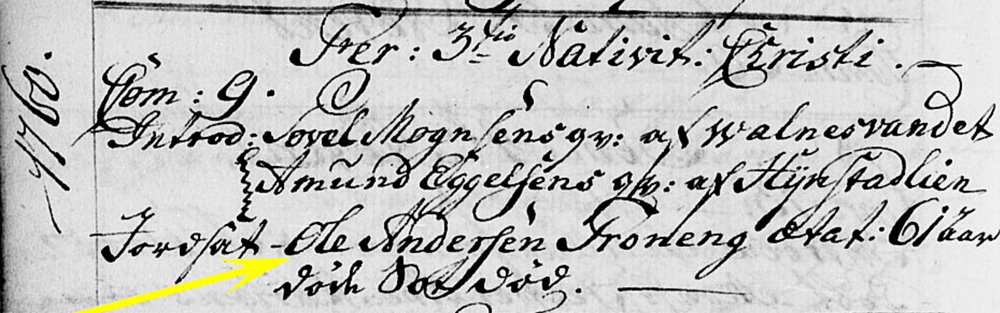 1760.
Fer: 3tiæ Nativit: Christi.
Com: 9.
Introd: Iovel Mognsens qv: af Walnesvandet
Amund Eggelsens qv: af Hynstadlien
Jordsat - Ole Andersen Troneng Ætat: 61 aar
døde død.